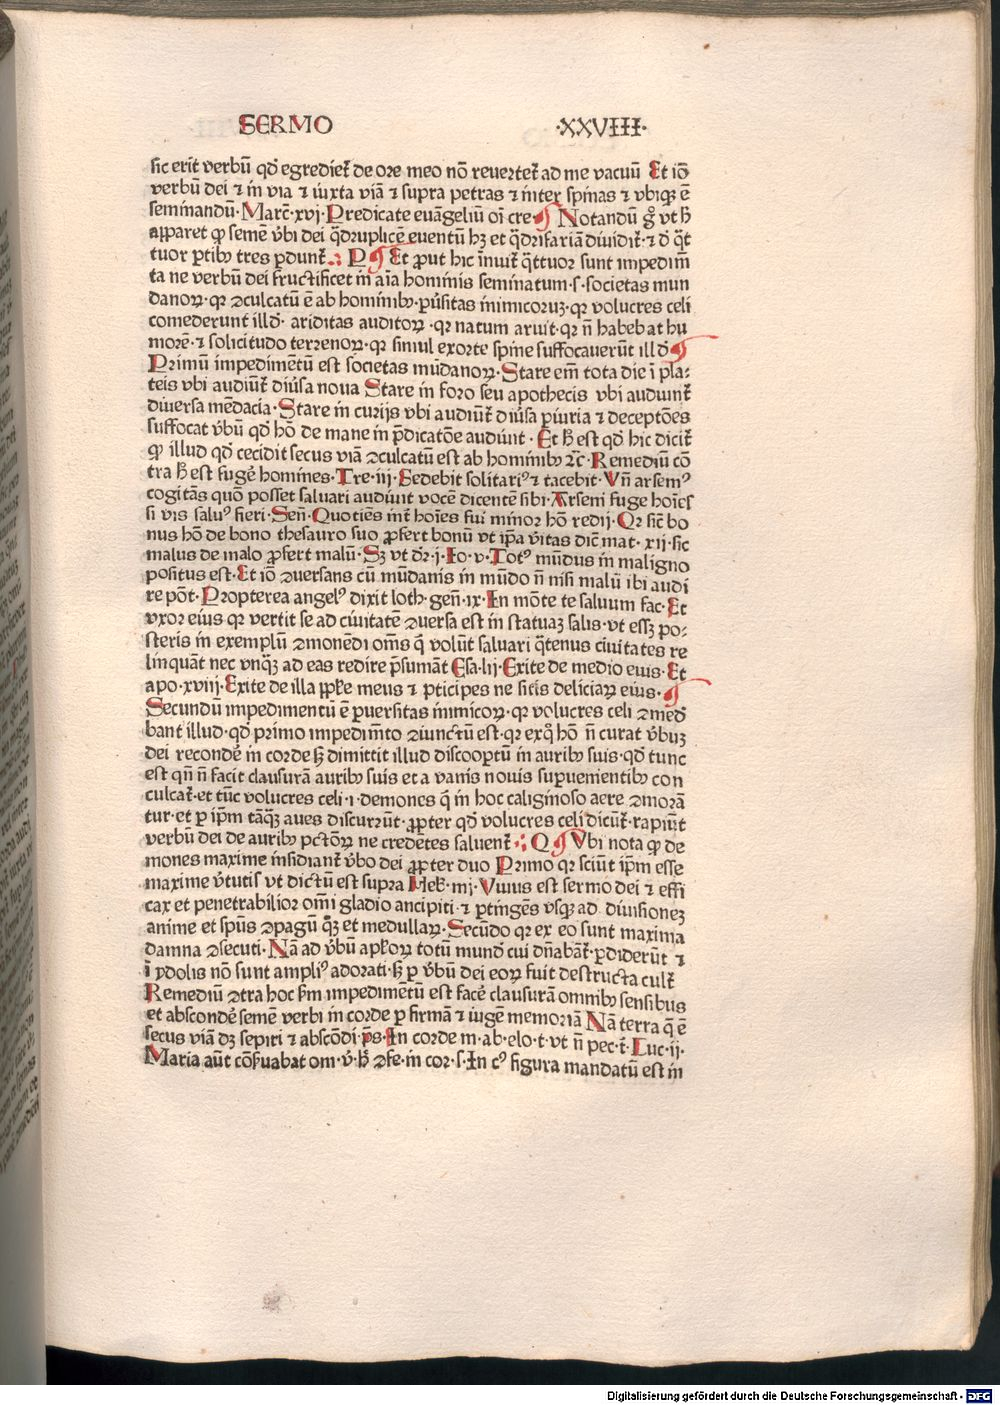 SERMO ·XXVIII·
sic erit verbū qd̛ egrediet̛ de ore meo nō reuertet̛ ad me vacuū Et iō
verbū dei ⁊ in via ⁊ iuxta viā ⁊ supra petras ⁊ inter spinas ⁊ vbiqȝ ē
seminandū· Marc̄·xvj· Predicate euāgeliū oī cre ¶ Notandū gͦ vt ħ
apparet ꝙ semē v̄bi dei q̄druplicē euentū hȝ et q̄drifariā diuidit̛·⁊ d̛ q̄t
tuor ꝑtibꝰ tres ꝑdunt̛ ·: P ¶ Et ꝓut hic īnuit̛ q̄ttuor sunt impedim̄
ta ne verbū dei fructificet in aīa hominis seminatum·s· societas mun
danoꝝ· qꝛ ꝯculcatū ē ab hominibꝰ· pưsitas inimicoruꝫ· qꝛ volucres celi
comederunt illd̛· ariditas auditoꝝ ·qꝛ natum aruit· qꝛ n̄ habebat hu
morē· ⁊ solicitudo terrenoꝝ· qꝛ simul exorte spine suffocauerūt illd̛ ¶
Primū impedimētū est societas mūdanoꝝ· Stare em̄ tota die ī pla⸗
teis vbi audiūt̛ diưsa noua Stare in foro seu apothecis vbi audiunt
diuersa mēdacia· Stare in curijs vbi audiūt̛ diưsa piuria ⁊ deceptōes
suffocat v̄bū qd̛ hō de mane in p̄dicatōe audiūt · Et ħ est qd̛ hic dicit̛
ꝙ illud qd̛ cecidit secus viā ꝯculcatū est ab hominibꝰ ⁊c̄· Remediū cō
tra ħ est fugē homines· Tre·iij· Sedebit solitariꝰ ⁊ tacebit· Vn̄ arsemꝰ
cogitās quō posset saluari audiuit vocē dicentē sibi· Arsem fuge hoīes
si vis saluꝰ fieri· Sen̄· Quotiēs int̛ hoīes fui minor hō redij· Qꝛ sic̄ bo
nus hō de bono thesauro suo ꝓfert bonū vt ip̄a v̄itas dic̄ mat·xij· sic
malus de malo ꝓfert malū· Sȝ vt d̛r·j·Io·v· Totꝰ mūdus in maligno
positus est· Et iō ꝯuersans cū mūdanis in mūdo n̄ nisi malū ibi audi
re pōt· Propterea angelꝰ dixit loth· gen̄·ix· In mōte te saluum fac· Et
vxor eius qꝛ vertit se ad ciuitatē ꝯuersa est in statuaꝫ salis· vt essȝ po⸗
steris in exemplū ꝯmonēdi om̄s q̄ volūt saluari q̄tenus ciuitates re
linquāt nec vnq̄ꝫ ad eas redire p̄sumāt Esa·lij· Exite de medio euis· Et
apo·xviij· Exite de illa ppl̛e meus ⁊ ꝑticipes ne sitis deliciaꝝ eius· ¶
Secundū impedimentū ē ꝑuersitas inimicoꝝ· qꝛ volucres celi ꝯmed̛
bant illud· qd̛ primo impedimēto ꝯiunctū est· qꝛ exqͦ hō n̄ curat v̄buꝫ
dei recondē in corde sꝫ dimittit illud discooptū in auribꝰ suis· qd̛ tunc
est qn̄ n̄ facit clausurā auribꝰ suis et a vanis nouis supuenientibꝰ con
culcat̛· et tūc volucres celi·i· demones q̄ in hoc caliginoso aere ꝯmorā
tur· et ꝑ ip̄m tāq̄ꝫ aues discurrūt· ꝓpter qd̛ volucres celi dicūt̛· rapiūt
verbū dei de auribꝰ pctōꝝ ne credētes saluent̛ ·: Q ¶ Vbi nota ꝙ de
mones maxime insidiant̛ v̄bo dei ꝓpter duo Primo qꝛ sciūt ip̄m esse
maxime v̄tutis vt dictū est supra Heb̛·iiij· Viuus est sermo dei ⁊ effi
cax et penetrabilior om̄i gladio ancipiti· ⁊ ꝑtingēs vsqȝ ad diuisioneꝫ
anime et spūs ꝯpagū q̄ꝫ et medullaꝝ· Secūdo qꝛ ex eo sunt maxima
damna ꝯsecuti· Nā ad v̄bū apl̛oꝝ totū mund̛ cui dn̄abāt̛· ꝑdiderūt ⁊
ī ydolis nō sunt ampliꝰ adorati· sꝫ ꝑ v̄bū dei eoꝝ fuit destructa cult̛
Remediū ꝯtra hoc ẜm impedimētū est facē clausurā omnibꝰ sensibus
et abscondē semē verbi in corde ꝑ firmā ⁊ iugē memoriā Nā terra q̄ ē
secus viā dȝ sepiri ⁊ abscōdi· p̄s· In corde m·ab·elo·t·vt n̄ pec·t̄· Luc·ij·
Maria aūt cōẜuabat om·v̄·ħ ꝯfe·in cor·s· In cꝰ figura mandatū est in
Digitalisierung gefördert durch die Deutsche Forschungsgemeinschaft - DFG